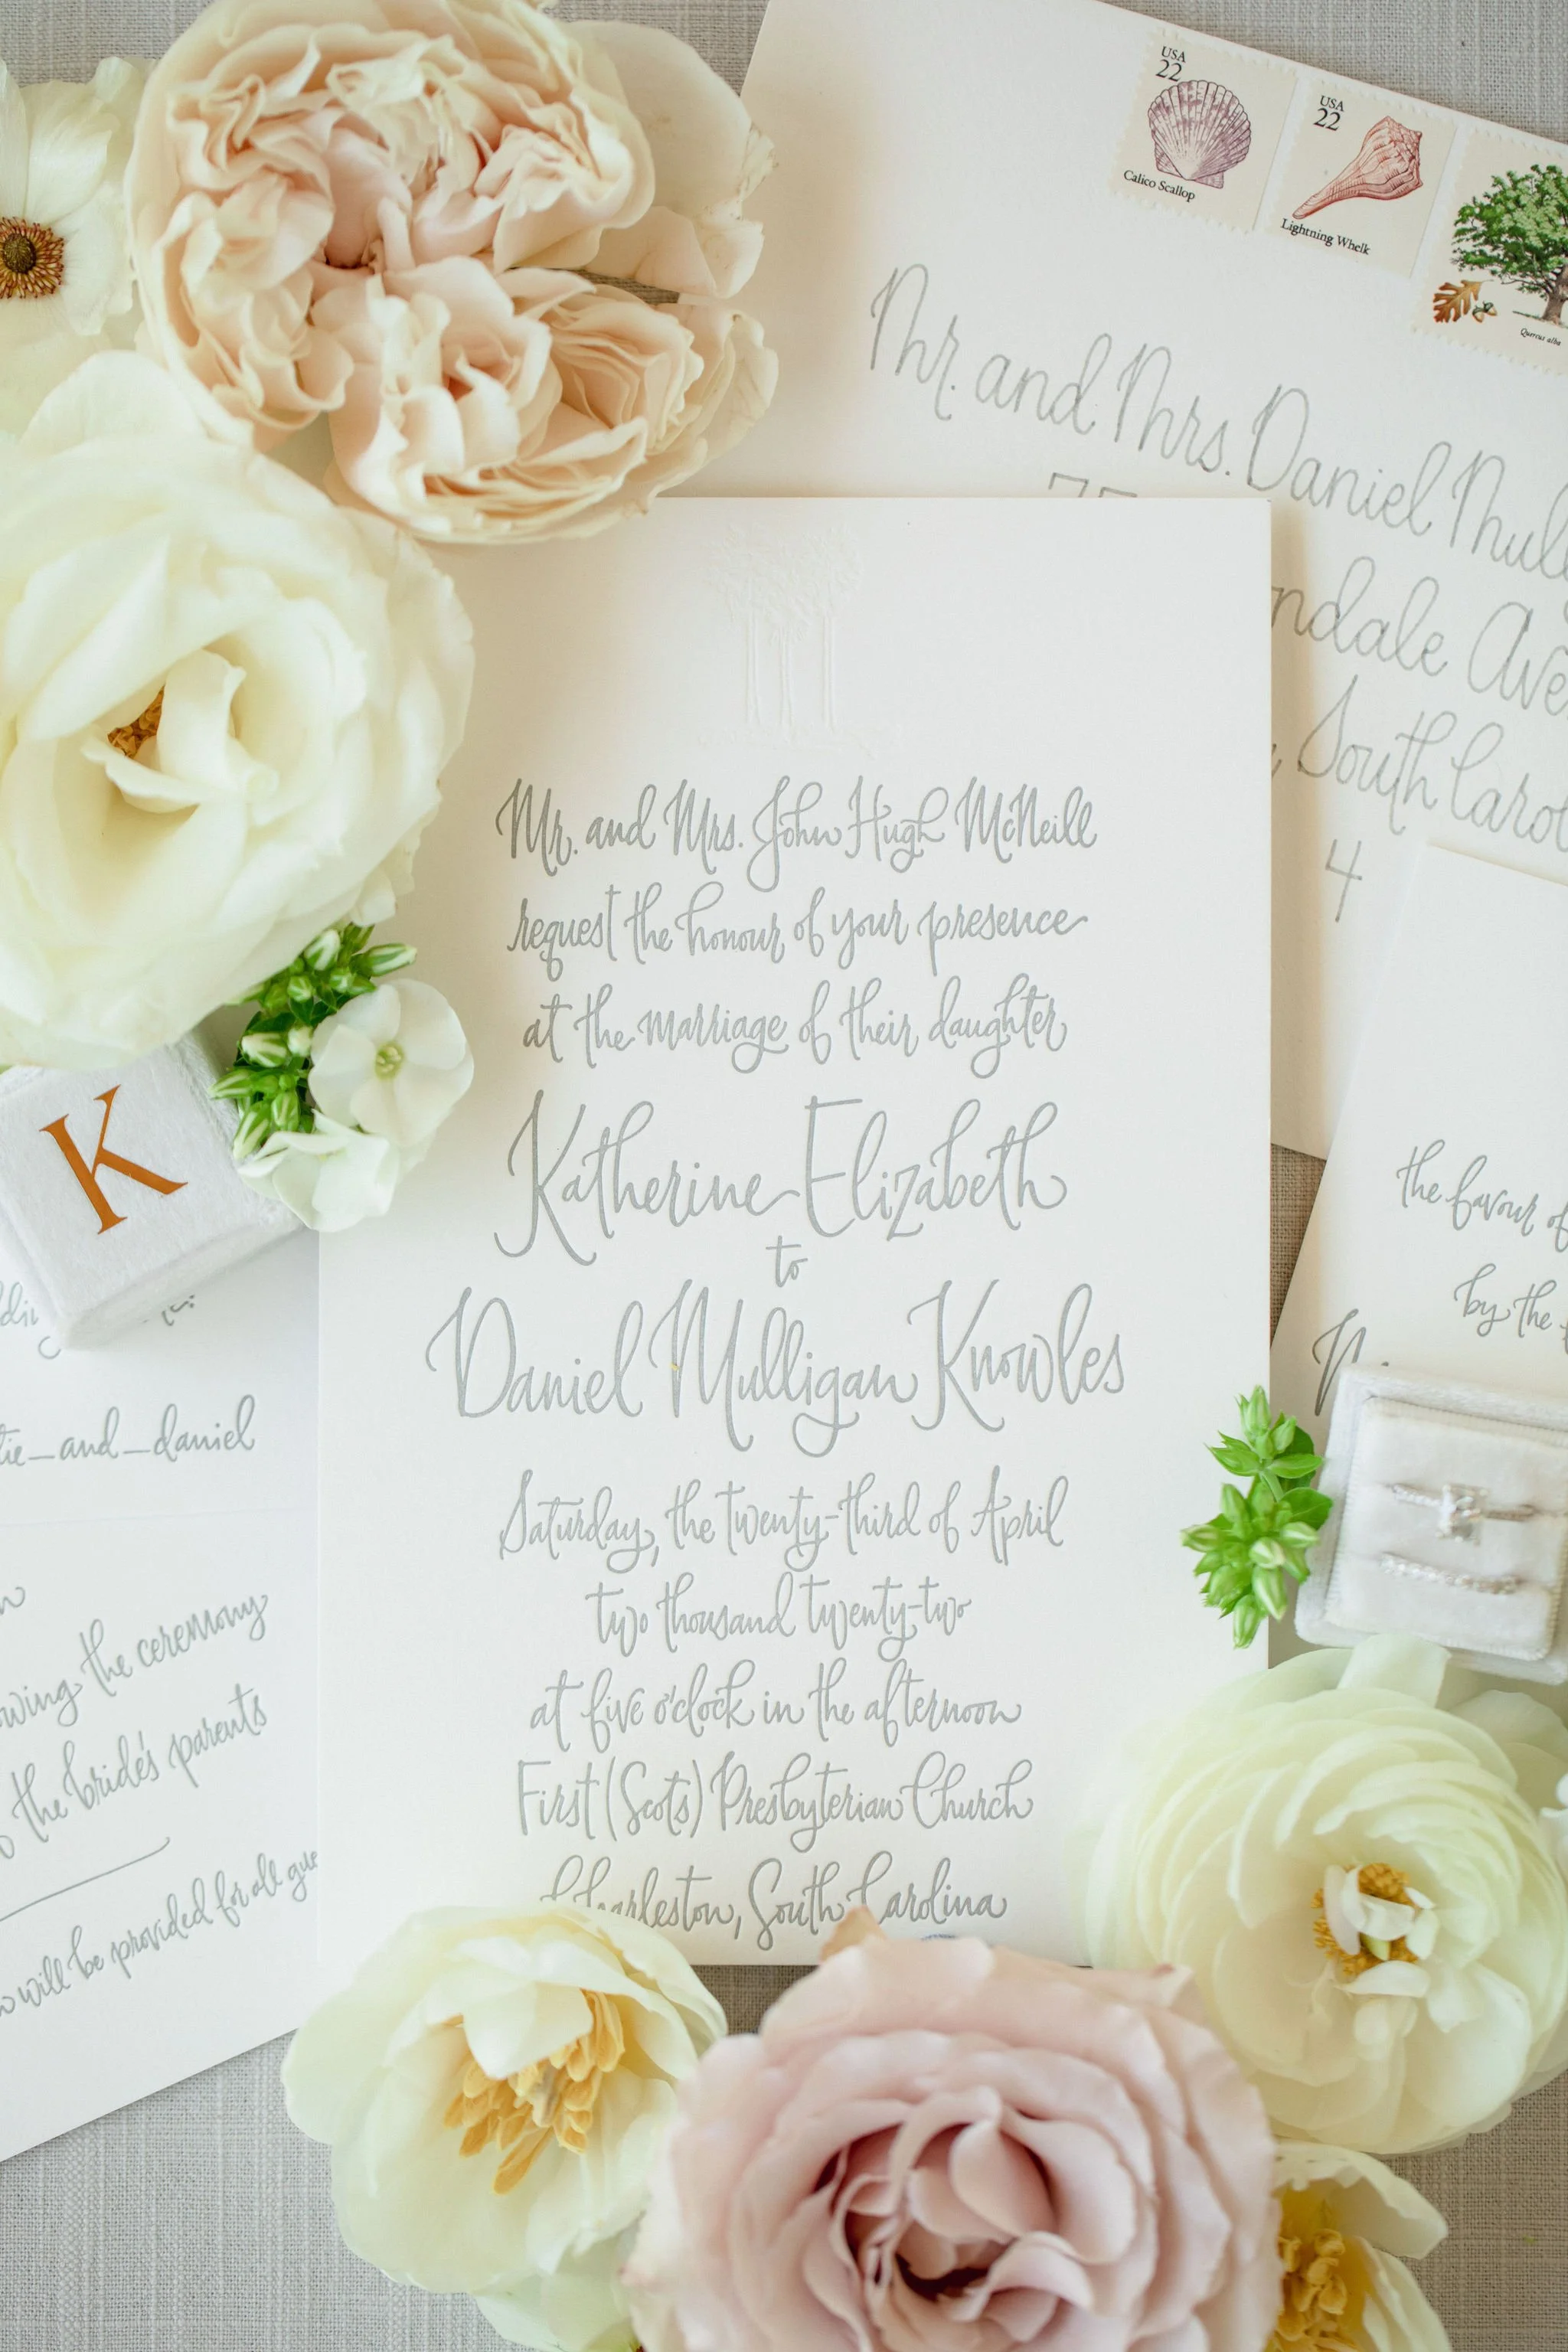 USA
22
Calico Scallop
USA
22
Lightning Whelk
Quercus alba
Mr. and Mrs. Daniel
South
4
Mr. and Mrs. John Hugh McNeill
request the honour of your presence
at the marriage of their daughter
Katherine Elizabeth
to
Daniel Mulligan Knowles
Saturday, the twenty-third of April
two thousand twenty-two
at five o'clock in the afternoon
First (Scots) Presbyterian Church
Charleston, South Carolina
the favour of
by the
K
_and_daniel
the ceremony
the bride's parents
will be provided for all